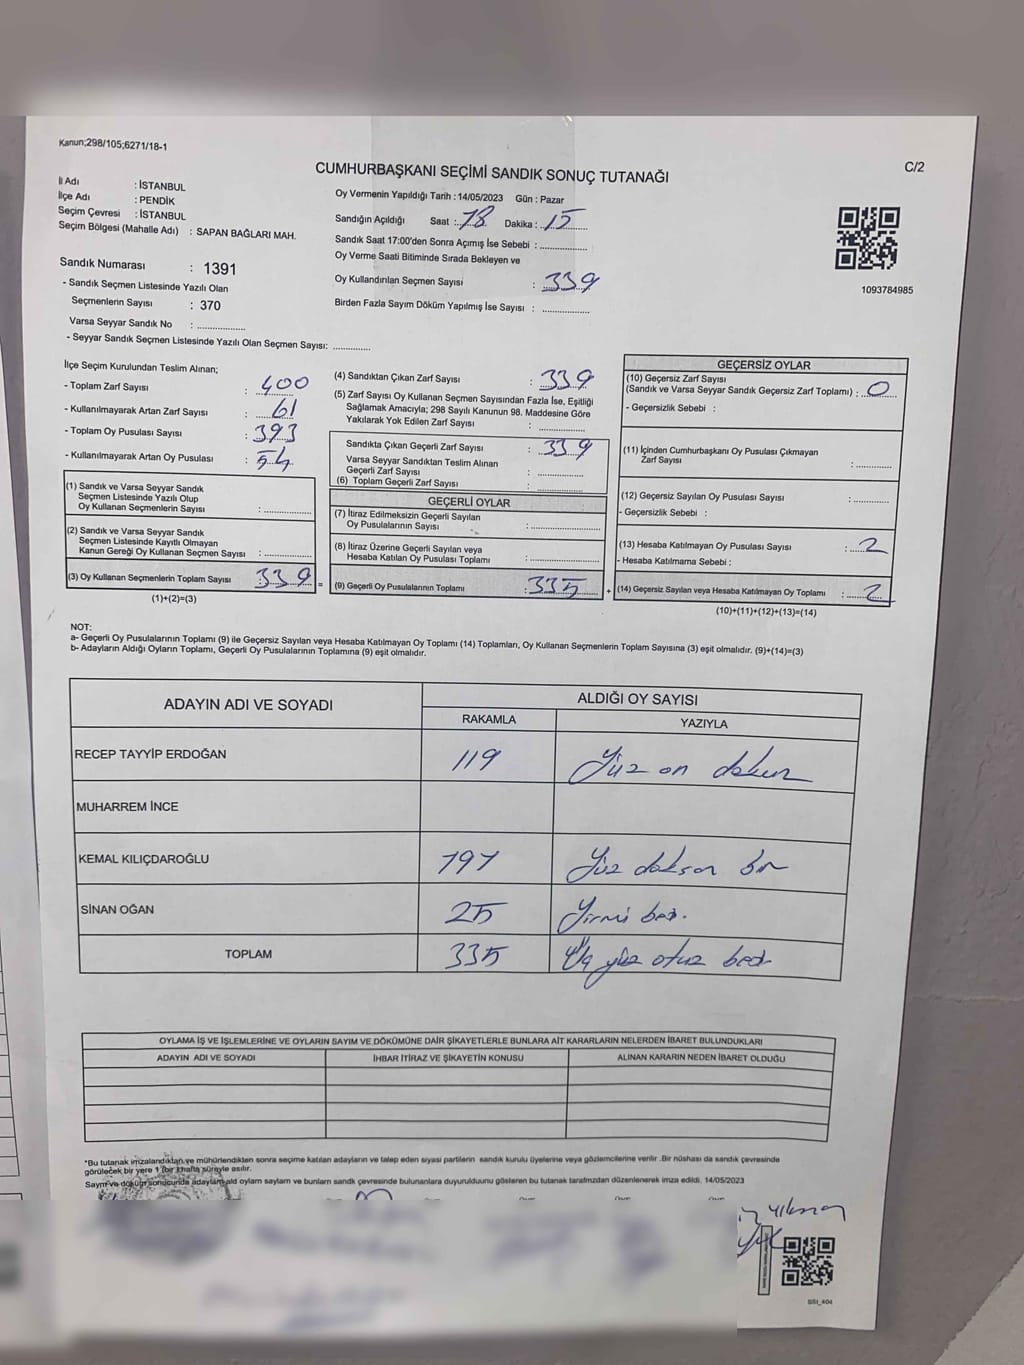 Kanun;298/105;6271/18-1
C/2
CUMHURBAŞKANI SEÇİMİ SANDIK SONUÇ TUTANAĞI
İl Adı : İSTANBUL
İlçe Adı : PENDİK
Seçim Çevresi : İSTANBUL
Seçim Bölgesi (Mahalle Adı) : SAPAN BAĞLARI MAH.
Oy Vermenin Yapıldığı Tarih : 14/05/2023 Gün : Pazar
Sandığın Açıldığı Saat : 18 Dakika : 15
Sandık Saat 17:00'den Sonra Açımış İse Sebebi :
Oy Verme Saati Bitiminde Sırada Bekleyen ve
Oy Kullandırılan Seçmen Sayısı : 339
Birden Fazla Sayım Döküm Yapılmış İse Sayısı :
1093784985
Sandık Numarası : 1391
- Sandık Seçmen Listesinde Yazılı Olan
Seçmenlerin Sayısı : 370
Varsa Seyyar Sandık No :
- Seyyar Sandık Seçmen Listesinde Yazılı Olan Seçmen Sayısı:
İlçe Seçim Kurulundan Teslim Alınan;
- Toplam Zarf Sayısı : 400
- Kullanılmayarak Artan Zarf Sayısı : 61
- Toplam Oy Pusulası Sayısı : 393
- Kullanılmayarak Artan Oy Pusulası : 54
(1) Sandık ve Varsa Seyyar Sandık
Seçmen Listesinde Yazılı Olup
Oy Kullanan Seçmenlerin Sayısı :
(2) Sandık ve Varsa Seyyar Sandık
Seçmen Listesinde Kayıtlı Olmayan
Kanun Gereği Oy Kullanan Seçmen Sayısı :
(3) Oy Kullanan Seçmenlerin Toplam Sayısı 339 =
(1)+(2)=(3)
(4) Sandıktan Çıkan Zarf Sayısı : 339
(5) Zarf Sayısı Oy Kullanan Seçmen Sayısından Fazla İse, Eşitliği
Sağlamak Amacıyla; 298 Sayılı Kanunun 98. Maddesine Göre
Yakılarak Yok Edilen Zarf Sayısı :
Sandıkta Çıkan Geçerli Zarf Sayısı : 339
Varsa Seyyar Sandıktan Teslim Alınan
Geçerli Zarf Sayısı :
(6) Toplam Geçerli Zarf Sayısı :
GEÇERLİ OYLAR
(7) İtiraz Edilmeksizin Geçerli Sayılan
Oy Pusulalarının Sayısı :
(8) İtiraz Üzerine Geçerli Sayılan veya
Hesaba Katılan Oy Pusulası Toplamı :
(9) Geçerli Oy Pusulalarının Toplamı : 335 +
GEÇERSİZ OYLAR
(10) Geçersiz Zarf Sayısı
(Sandık ve Varsa Seyyar Sandık Geçersiz Zarf Toplamı) : 0
- Geçersizlik Sebebi :
(11) İçinden Cumhurbaşkanı Oy Pusulası Çıkmayan
Zarf Sayısı :
(12) Geçersiz Sayılan Oy Pusulası Sayısı :
- Geçersizlik Sebebi :
(13) Hesaba Katılmayan Oy Pusulası Sayısı : 2
- Hesaba Katılmama Sebebi :
(14) Geçersiz Sayılan veya Hesaba Katılmayan Oy Toplamı : 2
(10)+(11)+(12)+(13)=(14)
NOT:
a- Geçerli Oy Pusulalarının Toplamı (9) ile Geçersiz Sayılan veya Hesaba Katılmayan Oy Toplamı (14) Toplamları, Oy Kullanan Seçmenlerin Toplam Sayısına (3) eşit olmalıdır. (9)+(14)=(3)
b- Adayların Aldığı Oyların Toplamı, Geçerli Oy Pusulalarının Toplamına (9) eşit olmalıdır.
ADAYIN ADI VE SOYADI ALDIĞI OY SAYISI
RAKAMLA YAZIYLA
RECEP TAYYİP ERDOĞAN 119 Yüz on dokuz
MUHARREM İNCE
KEMAL KILIÇDAROĞLU 191 Yüz doksan bir
SİNAN OĞAN 25 Yirmi beş.
TOPLAM 335 Üç yüz otuz beş
OYLAMA İŞ VE İŞLEMLERİNE VE OYLARIN SAYIM VE DÖKÜMÜNE DAİR ŞİKAYETLERLE BUNLARA AİT KARARLARIN NELERDEN İBARET BULUNDUKLARI
ADAYIN ADI VE SOYADI İHBAR İTİRAZ VE ŞİKAYETİN KONUSU ALINAN KARARIN NEDEN İBARET OLDUĞU
*Bu tutanak imzalandıktan ve mühürlendikten sonra seçime katılan adayların ve talep eden siyasi partilerin sandık kurulu üyelerine veya gözlemcilerine verilir. Bir nüshası da sandık çevresinde
görülecek bir yere 1 (bir) hafta süreyle asılır.
Sayım ve döküm sonucunda adayların aldığı oyların sayıları ve bunların sandık çevresinde bulunanlara duyurulduğunu gösteren bu tutanak tarafımızdan düzenlenerek imza edildi. 14/05/2023
SSt_404